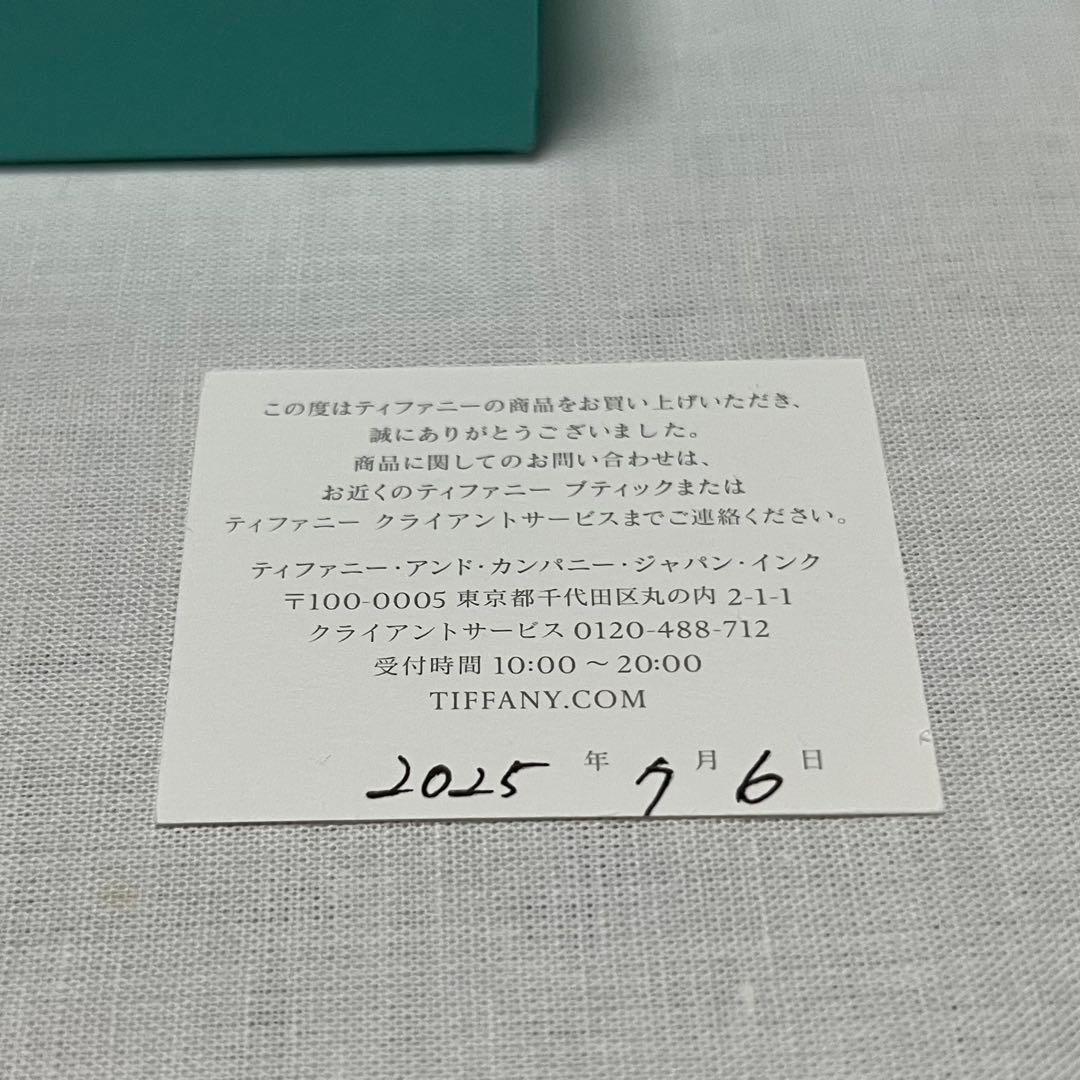 この度はティファニーの商品をお買い上げいただき、
誠にありがとうございました。
商品に関してのお問い合わせは、
お近くのティファニー ブティックまたは
ティファニー クライアントサービスまでご連絡ください。
ティファニー・アンド・カンパニー・ジャパン・インク
〒100-0005 東京都千代田区丸の内 2-1-1
クライアントサービス 0120-488-712
受付時間 10:00 ～ 20:00
TIFFANY.COM
2025 年 7 月 6 日